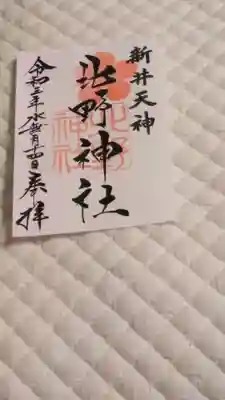 新井天神
北野神社
令和三年水無月十四日奉拝
北野
神社